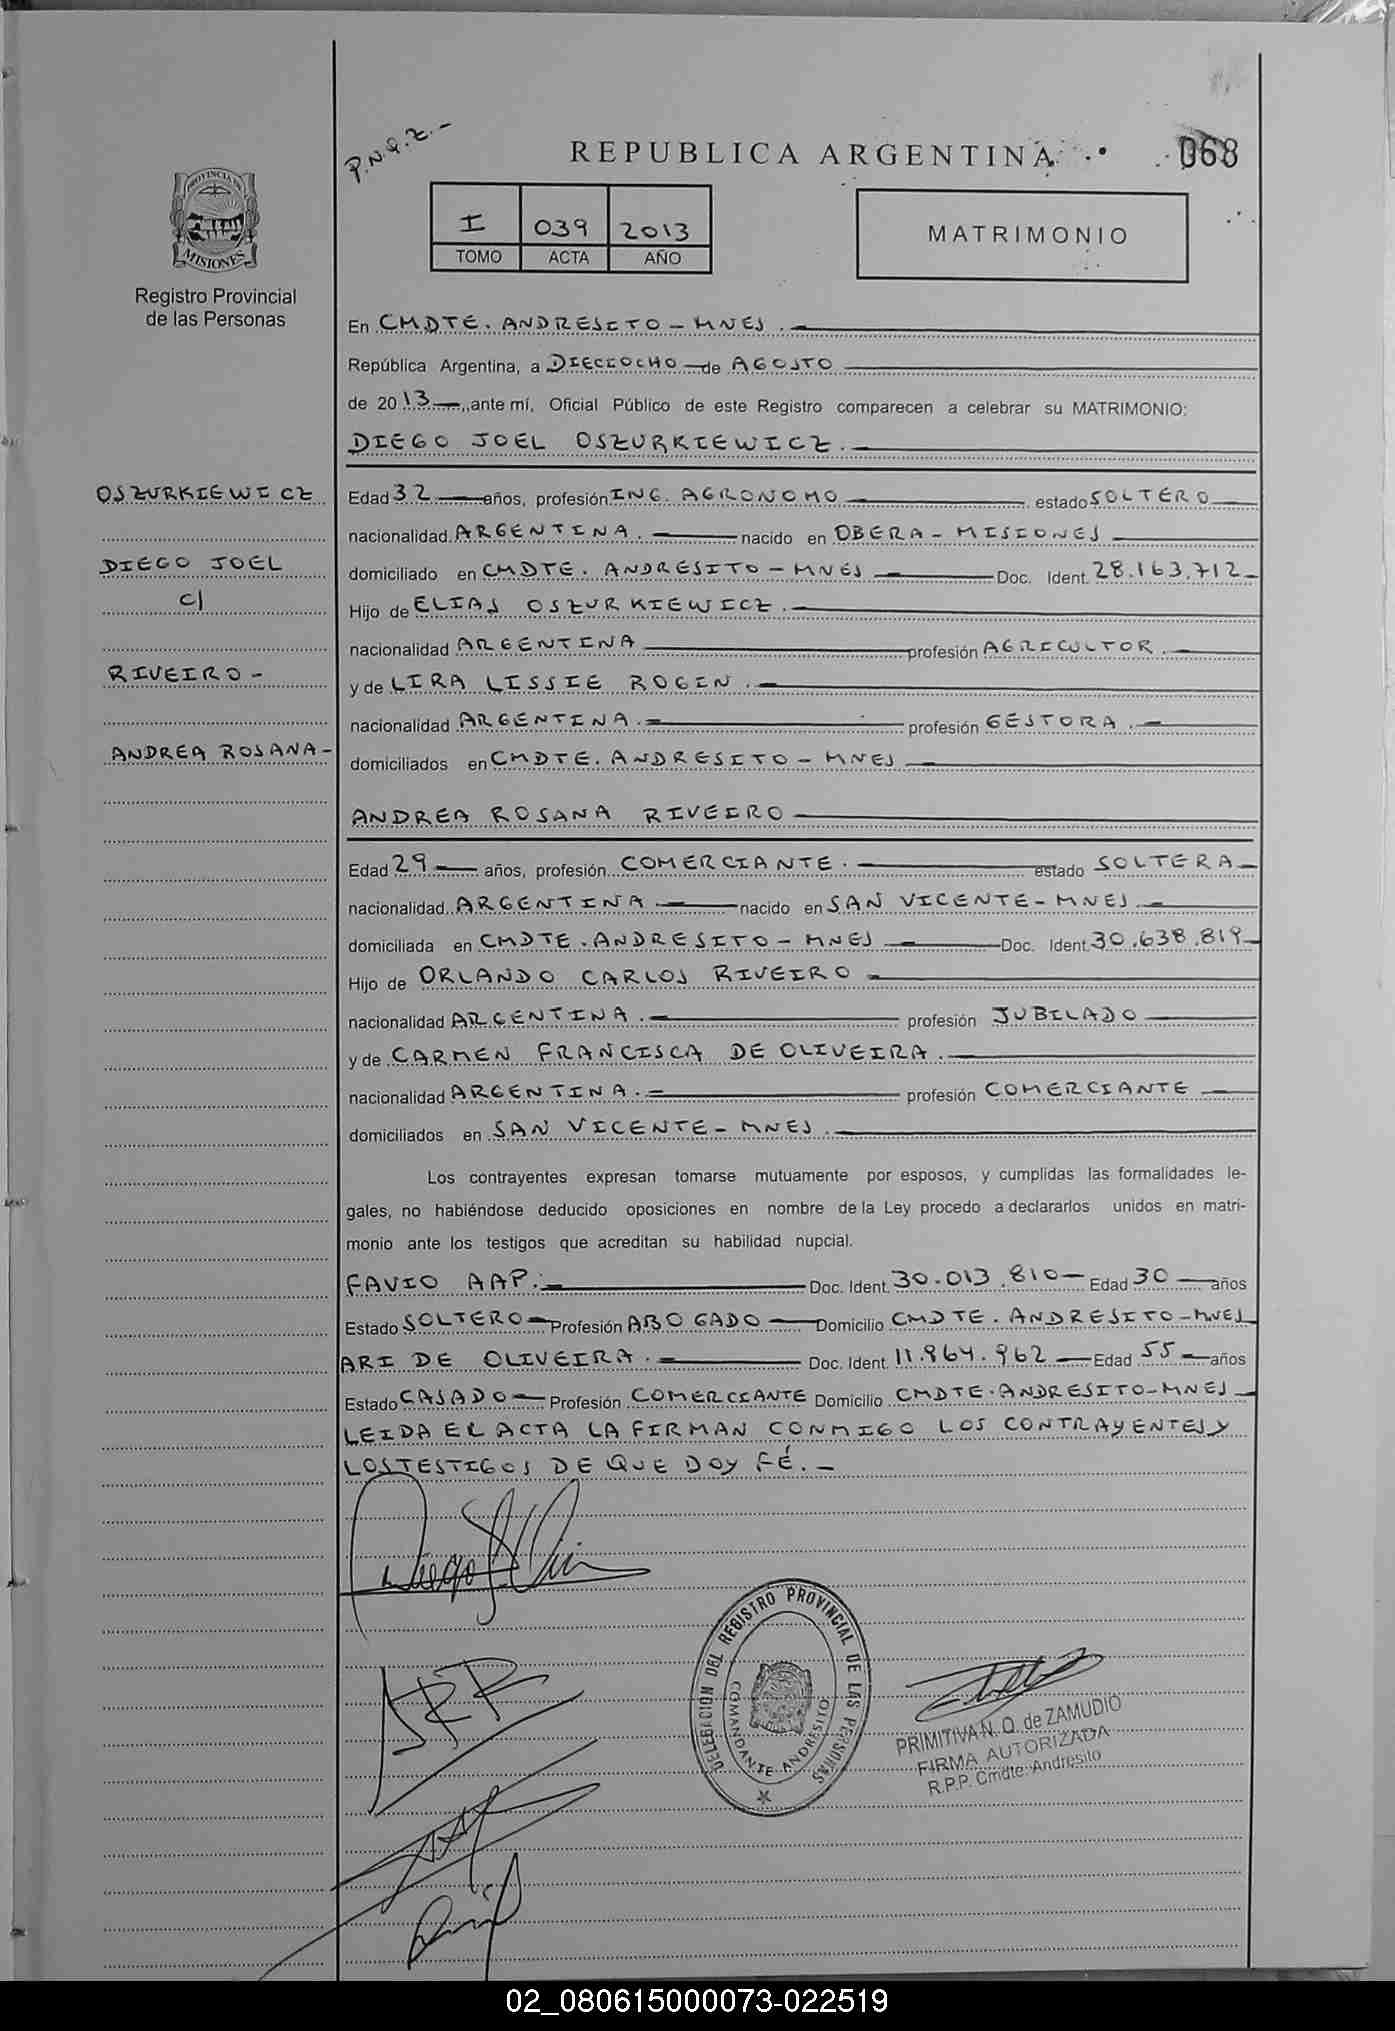 P.N.Q.Z.-
REPUBLICA ARGENTINA
068
PROVINCIA DE
MISIONES
Registro Provincial
de las Personas
I 039 2013
TOMO ACTA AÑO
MATRIMONIO
En CMDTE. ANDRESITO - MNES.
República Argentina, a DIECIOCHO de AGOSTO
de 2013 ante mí, Oficial Público de este Registro comparecen a celebrar su MATRIMONIO:
DIEGO JOEL OSZURKIEWICZ.
OSZURKIEWICZ
DIEGO JOEL
c/
RIVEIRO-
ANDREA ROSANA-
Edad 32 años, profesión ING. AGRONOMO estado SOLTERO
nacionalidad ARGENTINA. nacido en OBERA - MISIONES
domiciliado en CMDTE. ANDRESITO - MNES Doc. Ident. 28.163.712-
Hijo de ELIAS OSZURKIEWICZ.
nacionalidad ARGENTINA profesión AGRICULTOR.
y de LIRA LISSIE ROGIN.
nacionalidad ARGENTINA. profesión GESTORA.
domiciliados en CMDTE. ANDRESITO - MNES
ANDREA ROSANA RIVEIRO
Edad 29 años, profesión COMERCIANTE. estado SOLTERA
nacionalidad ARGENTINA nacido en SAN VICENTE - MNES.
domiciliada en CMDTE. ANDRESITO - MNES Doc. Ident. 30.638.819
Hijo de ORLANDO CARLOS RIVEIRO
nacionalidad ARGENTINA. profesión JUBILADO
y de CARMEN FRANCISCA DE OLIVEIRA.
nacionalidad ARGENTINA. profesión COMERCIANTE
domiciliados en SAN VICENTE - MNES.
Los contrayentes expresan tomarse mutuamente por esposos, y cumplidas las formalidades le-
gales, no habiéndose deducido oposiciones en nombre de la Ley procedo a declararlos unidos en matri-
monio ante los testigos que acreditan su habilidad nupcial.
FAVIO AAP. Doc. Ident. 30.013.810 Edad 30 años
Estado SOLTERO Profesión ABOGADO Domicilio CMDTE. ANDRESITO-MNES
ARI DE OLIVEIRA. Doc. Ident. 11.964.962 Edad 55 años
Estado CASADO Profesión COMERCIANTE Domicilio CMDTE. ANDRESITO-MNES
LEIDA EL ACTA LA FIRMAN CONMIGO LOS CONTRAYENTES y
LOS TESTIGOS DE QUE DOY FÉ.-
DELEGACION DEL REGISTRO PROVINCIAL DE LAS PERSONAS
COMANDANTE ANDRESITO
PRIMITIVA N. Q. de ZAMUDIO
FIRMA AUTORIZADA
R.P.P. Cmdte. Andresito
02_080615000073-022519